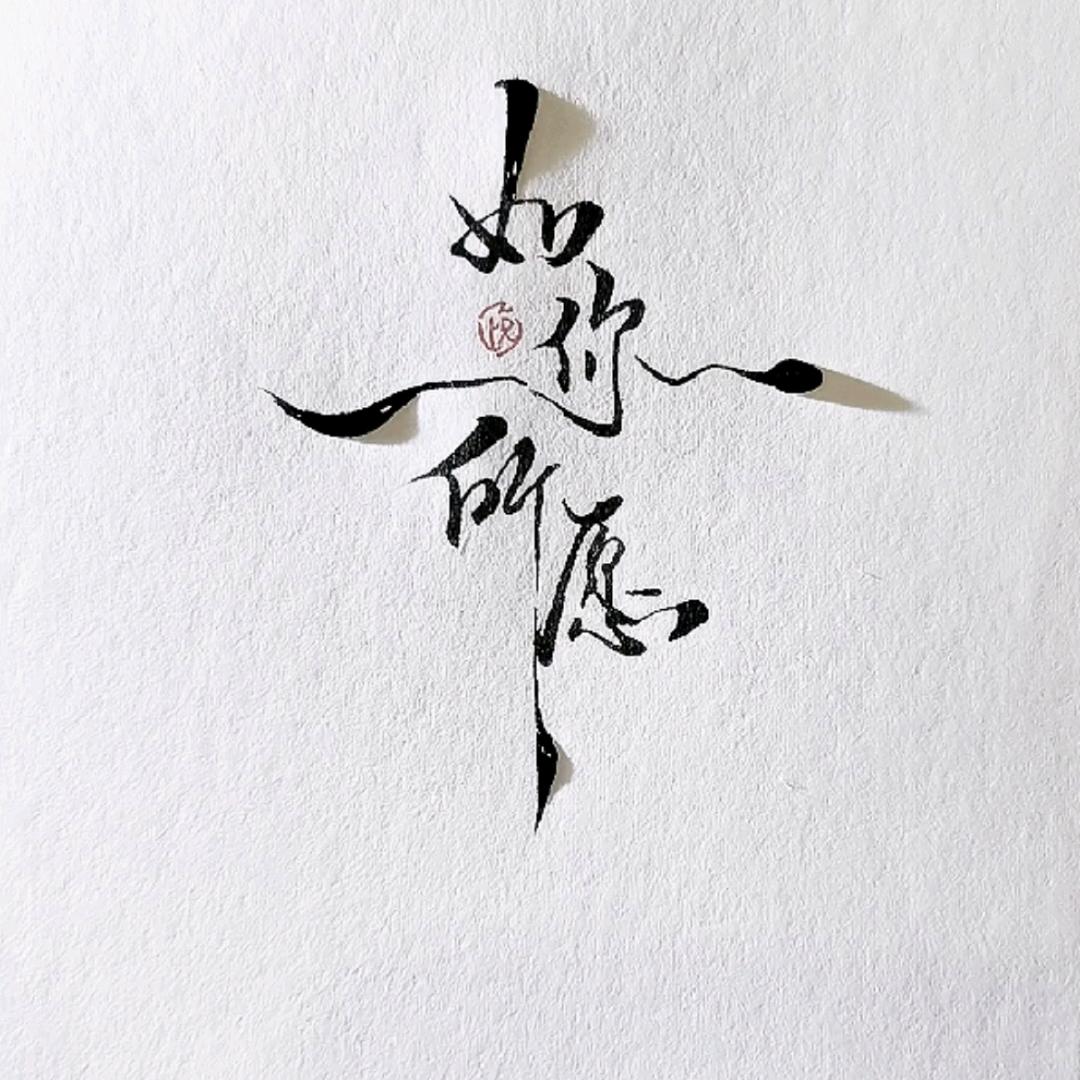 如你所愿
悦